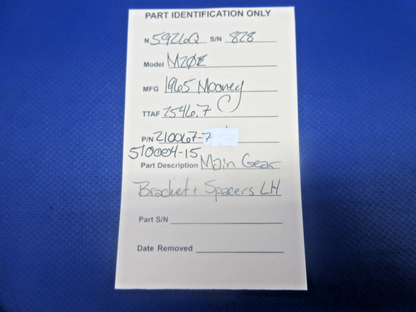 PART IDENTIFICATION ONLY
N 5926Q S/N 828
Model M20E
MFG 1965 Mooney
TTAF 7546.7
P/N 210067-7
510004-15
Part Description Main Gear
Bracket + Spacers LH
Part S/N
Date Removed